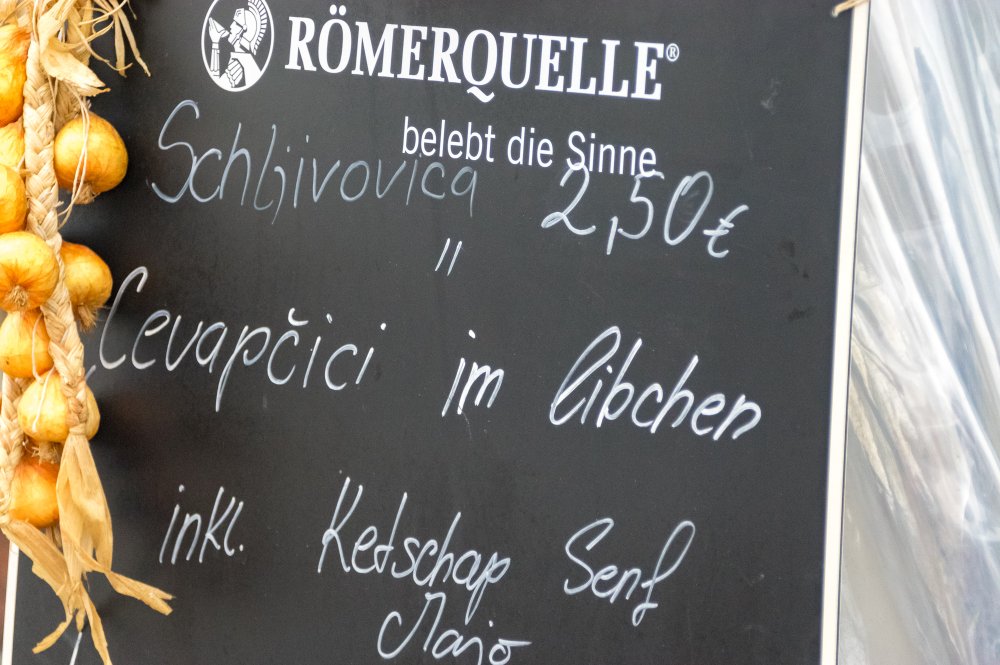 RÖMERQUELLE®
belebt die Sinne
Schljivovica 2,50€
"
Cevapčici im libchen
inkl. Ketschap Senf
Majo